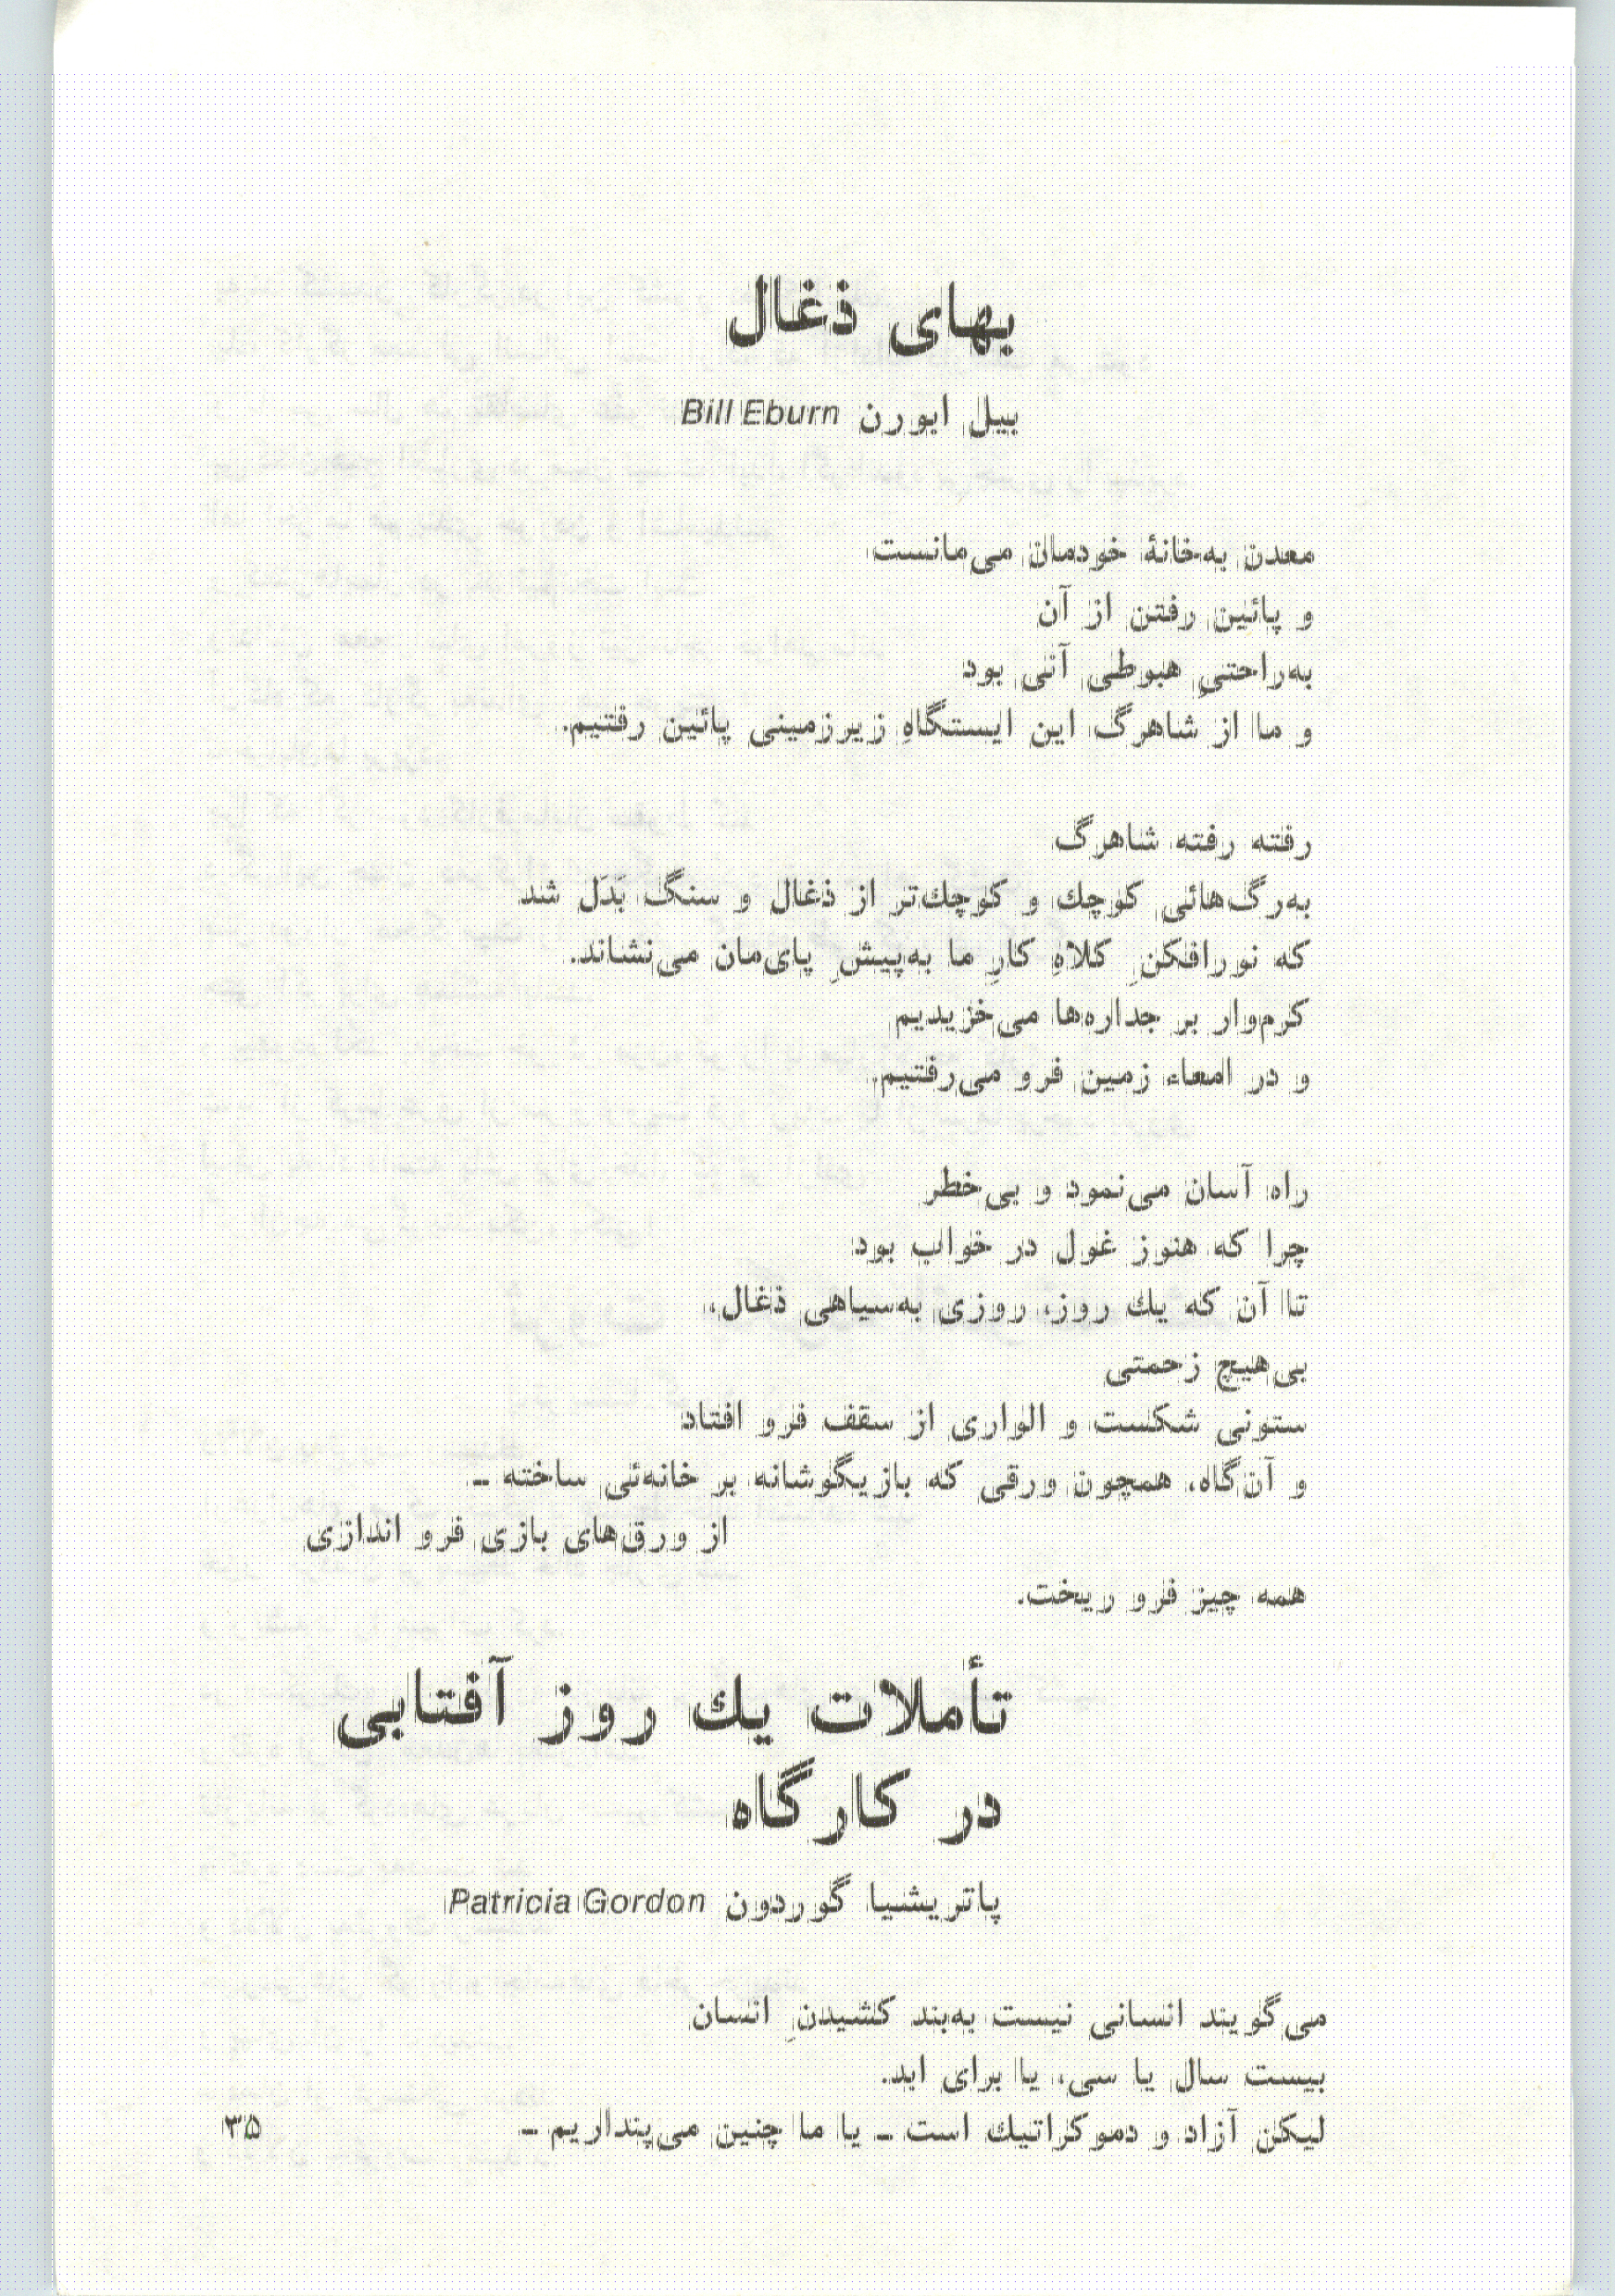 بهای ذغال
بیل ایورن Bill Eburn
معدن به‌خانهٔ خودمان می‌مانست
و پائین رفتن از آن
به‌راحتیِ هبوطی آنی بود
و ما از شاهرگ این ایستگاهِ زیرزمینی پائین رفتیم.
رفته رفته شاهرگ
به‌رگ‌هائی کوچك و کوچك‌تر از ذغال و سنگ بَدَل شد
که نورافکنِ کلاهِ کارِ ما به‌پیشِ پای‌مان می‌نشاند.
کرم‌وار بر جداره‌ها می‌خزیدیم
و در امعاء زمین فرو می‌رفتیم.
راه آسان می‌نمود و بی‌خطر
چرا که هنوز غول در خواب بود
تا آن که یك روز، روزی به‌سیاهی ذغال،
بی‌هیچ زحمتی
ستونی شکست و الواری از سقف فرو افتاد
و آن‌گاه، همچون ورقی که بازیگوشانه بر خانه‌ئی ساخته ـ
از ورق‌های بازی فرو اندازی
همه چیز فرو ریخت.
تأملات یك روز آفتابی
در کارگاه
پاتریشیا گوردون Patricia Gordon
می‌گویند انسانی نیست به‌بند کشیدنِ انسان
بیست سال یا سی، یا برای ابد.
لیکن آزاد و دموکراتیك است ـ یا ما چنین می‌پنداریم ـ
۳۵